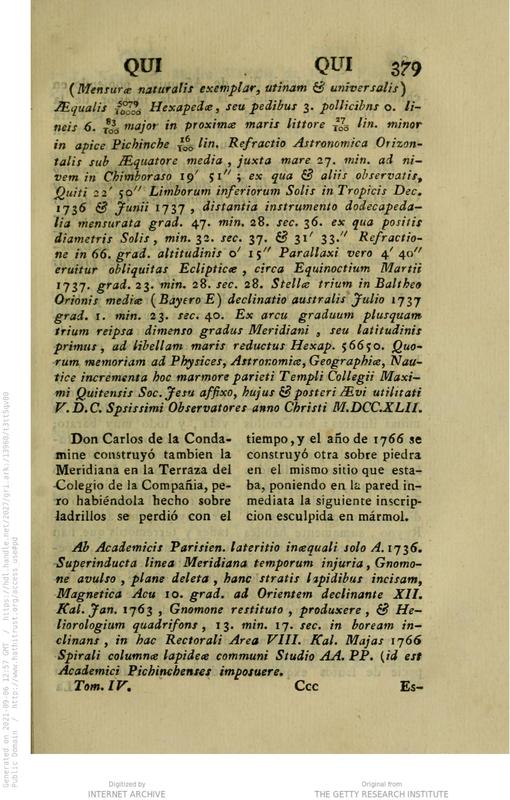 QUI QUI 379
(Mensuræ naturalis exemplar, utinam & universalis)
Æqualis 5079/10000 Hexapedæ, seu pedibus 3. pollicibns 0. li-
neis 6. 83/100 major in proximæ maris littore 27/100 lin. minor
in apice Pichinche 16/100 lin. Refractio Astronomica Orizon-
talis sub Æquatore media, juxta mare 27. min. ad ni-
vem in Chimboraso 19′ 51″; ex qua & aliis observatis,
Quiti 22′ 50″ Limborum inferiorum Solis in Tropicis Dec.
1736 & Junii 1737, distantia instrumento dodecapeda-
lia mensurata grad. 47. min. 28. sec. 36. ex qua positis
diametris Solis, min. 32. sec. 37. & 31′ 33.″ Refractio-
ne in 66. grad. altitudinis 0′ 15″ Parallaxi vero 4′ 40″
eruitur obliquitas Eclipticæ, circa Equinoctium Martii
1737. grad. 23. min. 28. sec. 28. Stellæ trium in Baltheo
Orionis mediæ (Bayero E) declinatio australis Julio 1737
grad. 1. min. 23. sec. 40. Ex arcu graduum plusquam
trium reipsa dimenso gradus Meridiani, seu latitudinis
primus, ad libellam maris reductus Hexap. 56650. Quo-
rum memoriam ad Physices, Astronomiæ, Geographiæ, Nau-
ticæ incrementa hoc marmore parieti Templi Collegii Maxi-
mi Quitensis Soc. Jesu affixo, hujus & posteri Ævi utilitati
V. D. C. Spsissimi Observatores anno Christi M.DCC.XLII.
Don Carlos de la Conda-
mine construyó tambien la
Meridiana en la Terraza del
Colegio de la Compañia, pe-
ro habiéndola hecho sobre
ladrillos se perdió con el
tiempo, y el año de 1766 se
construyó otra sobre piedra
en el mismo sitio que esta-
ba, poniendo en la pared in-
mediata la siguiente inscrip-
cion esculpida en mármol.
Ab Academicis Parisien. lateritio inæquali solo A. 1736.
Superinducta linea Meridiana temporum injuria, Gnomo-
ne avulso, plane deleta, hanc stratis lapidibus incisam,
Magnetica Acu 10. grad. ad Orientem declinante XII.
Kal. Jan. 1763, Gnomone restituto, produxere, & He-
liorologium quadrifons, 13. min. 17. sec. in boream in-
clinans, in hac Rectorali Area VIII. Kal. Majas 1766
Spirali columnæ lapideæ communi Studio AA. PP. (id est
Academici Pichinchenses imposuere.
Tom. IV. Ccc Es-
Generated on 2021-09-06 12:57 GMT / https://hdl.handle.net/2027/gri.ark:/13960/t3tt5qv00
Public Domain / http://www.hathitrust.org/access_use#pd
Digitized by
INTERNET ARCHIVE
Original from
THE GETTY RESEARCH INSTITUTE